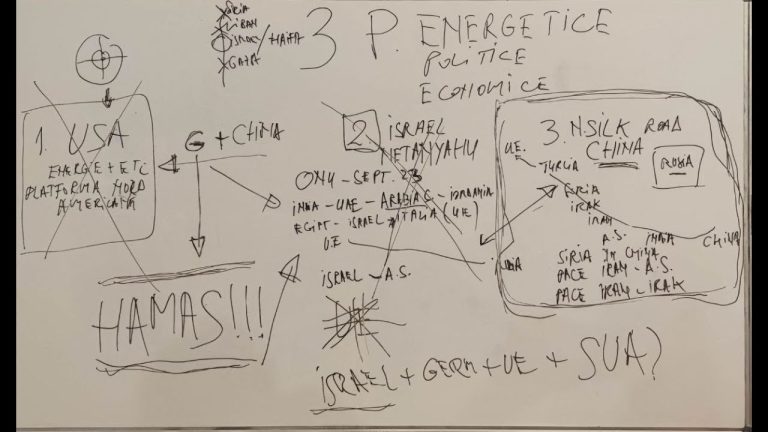 SIRIA
LIBAN
ISRAEL / HAIFA
GAZA
3 P. ENERGETICE
POLITICE
ECONOMICE
1. USA
ENERGIE + ETC
PLATFORMA NORD
AMERICANA
G + CHINA
HAMAS!!!
2 ISRAEL
NETANYAHU
ONU - SEPT. 23
INDIA - UAE - ARABIA S - IORDANIA
EGIPT - ISRAEL - ITALIA (UE)
UE
ISRAEL - A.S.
ISRAEL + GERM + UE + SUA?
3. N. SILK ROAD
CHINA
U.E.
TURCIA
SIRIA
IRAK
IRAN
A.S. INDIA CHINA
SIRIA IN CHINA
PACE IRAN - A.S.
PACE IRAN - IRAK